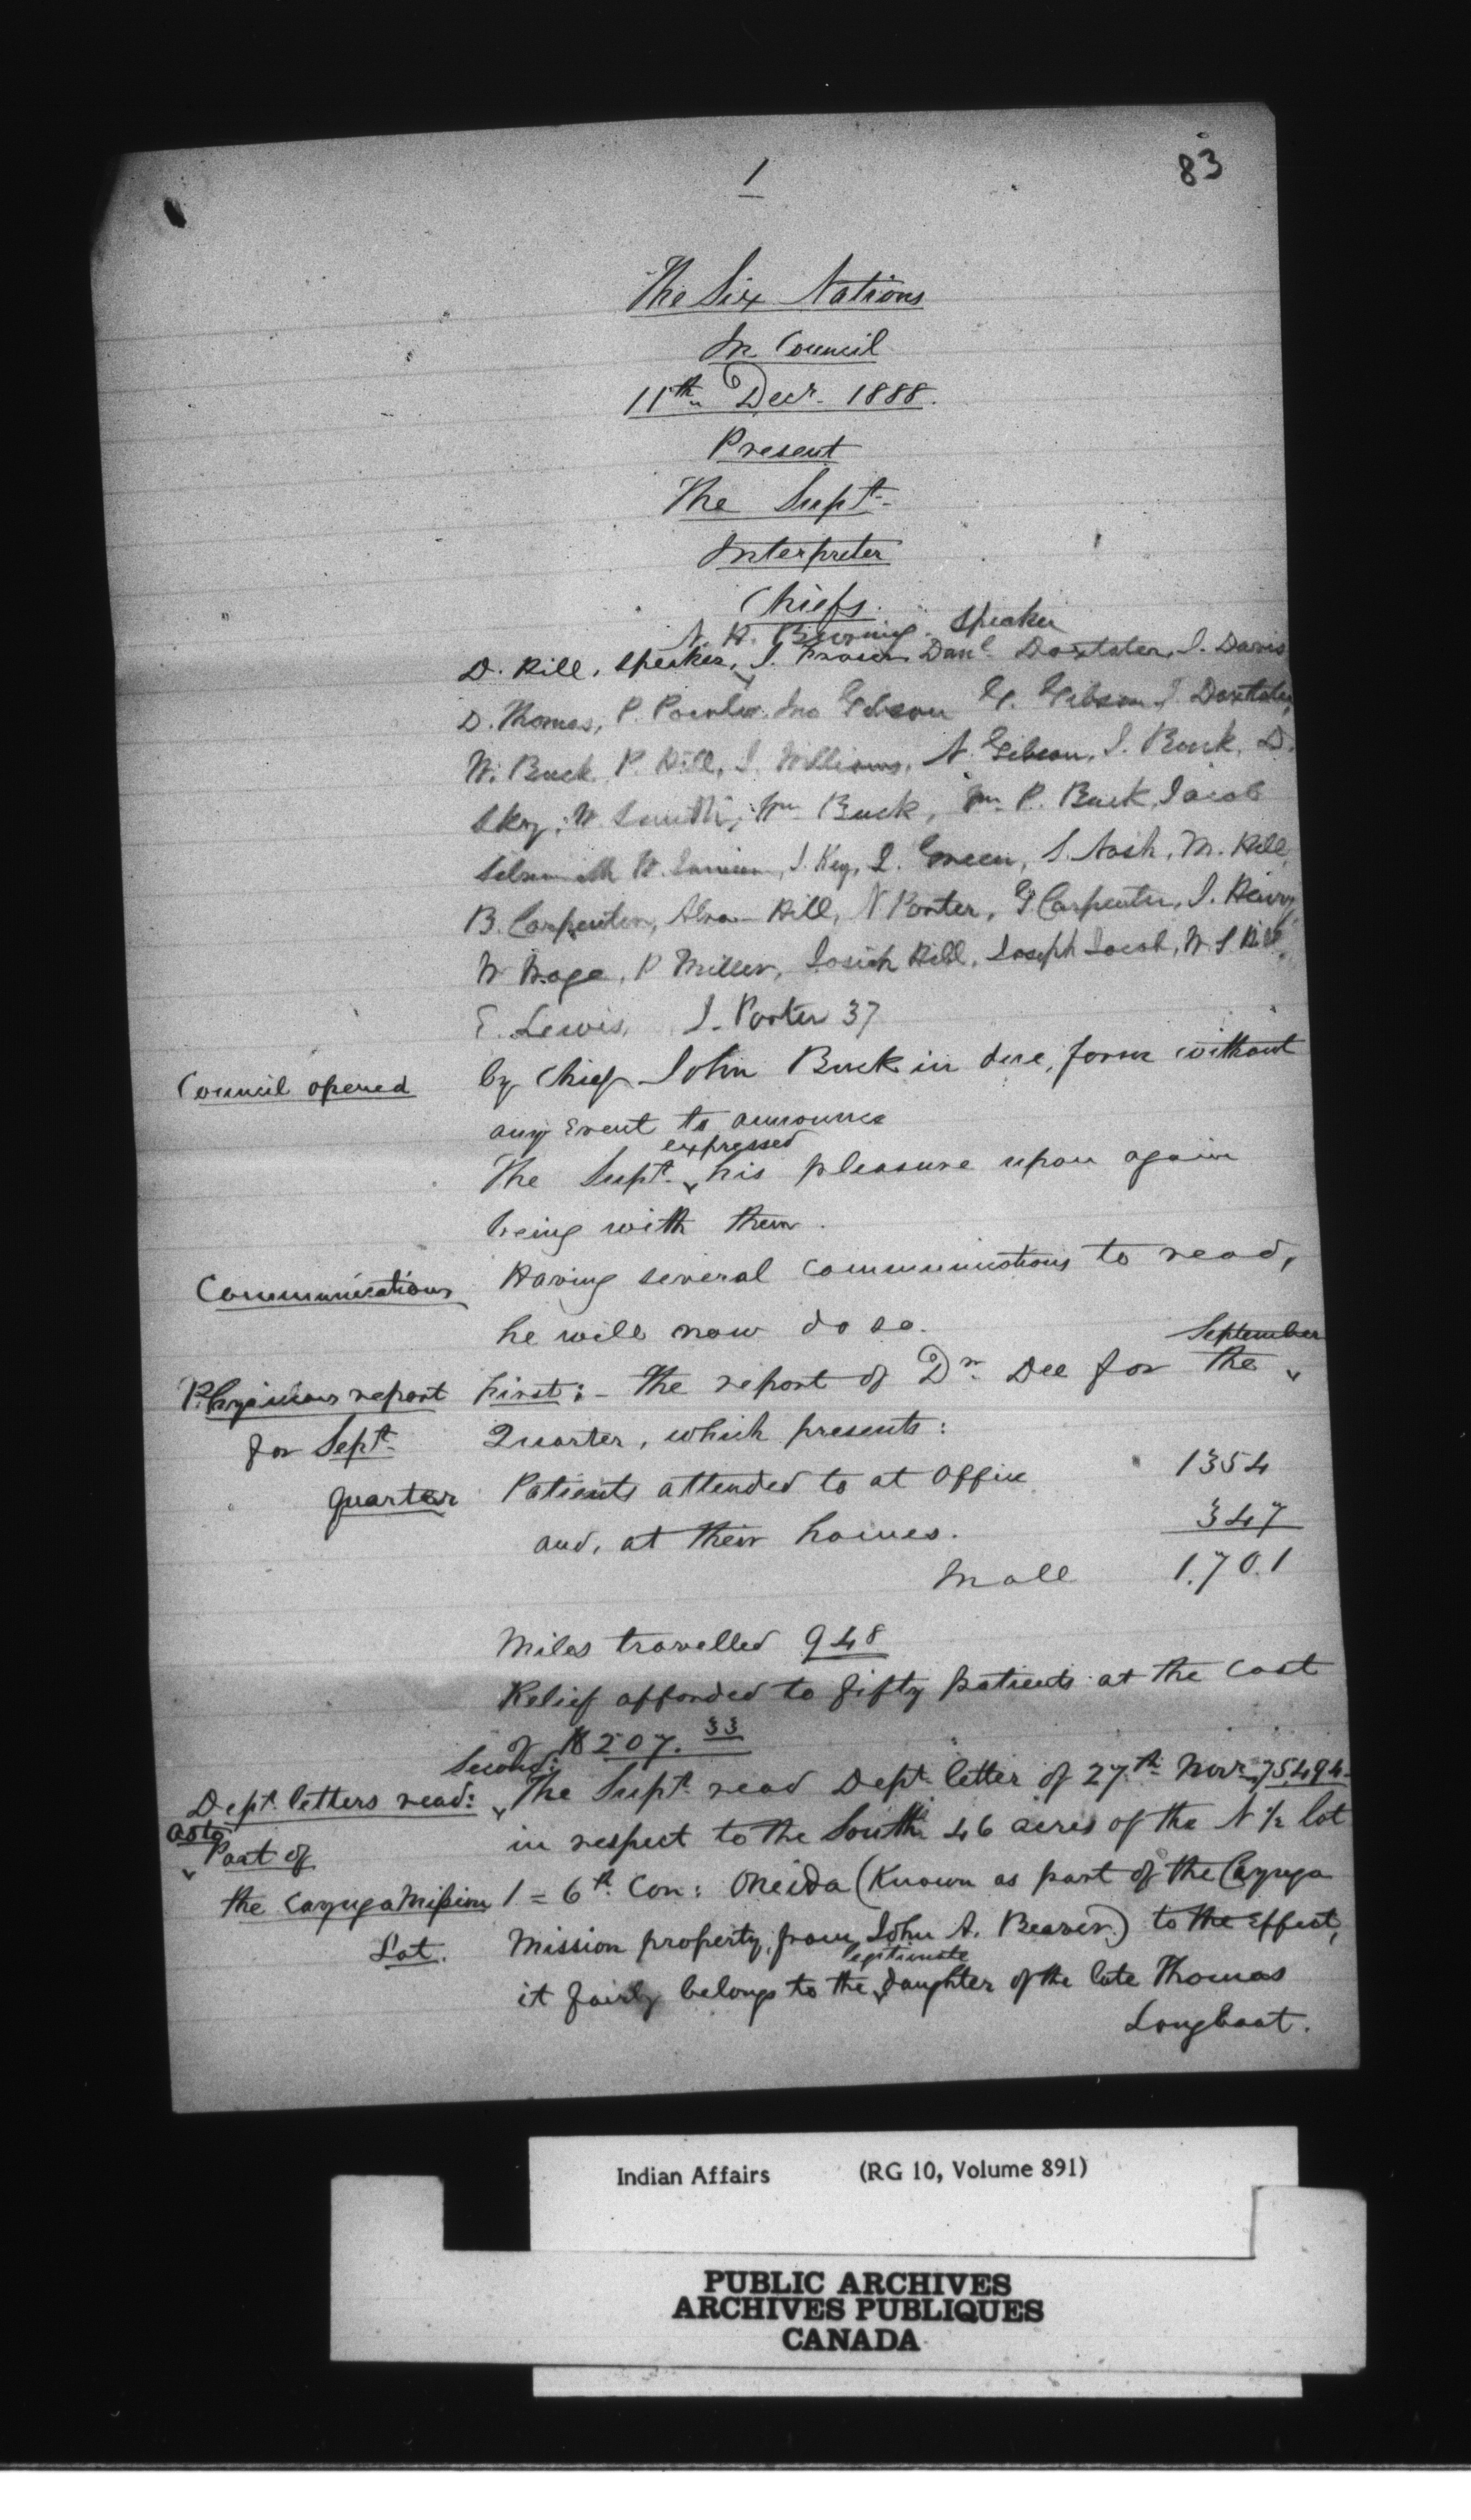 1
83
The Six Nations
In Council
11th Decr. 1888.
Present
The Supt.
Interpreter
Chiefs.
N. H. Burning. Speaker
D. Hill, Speaker, J. Danl. Doxtater, J. Davis
D. Thomas, P. Powless. Jno Gibson G. Gibson J. Doxtater,
W. Buck P. Hill, J. Williams, N. Gibson, J. Buck, D.
Sky, W. Smith, Wm Buck, Wm P. Buck, Jacob
J. Key, Green, S. Nash, M. Hill,
B. Carpenter, Abra Hill, N Porter, G Carpenter, J. Henry,
W Wage, P Miller, Josiah Hill, Joseph Jacob, W. S Hill,
E. Lewis, J. Porter 37
Council opened
by Chief John Buck in due form without
any event to announce
The Supt. expressed his pleasure upon again
being with them.
Communications
Having several communications to read,
he will now do so.
Physicians report
for Sept.
quarter
First:- The report of Dr. Dee for the September
Quarter, which presents:
Patients attended to at Office 1354
and, at their homes. 347
In all 1.701
Miles travelled 948
Relief afforded to fifty patients at the cost
of $207.33
Dept. letters read:
as to Part of
the Cayuga Mission
Lot.
Second: The Supt. read Dept. letter of 27th Novr. 75,494
in respect to the South 46 acres of the N 1/2 lot
1 = 6th Con: Oneida (Known as part of the Cayuga
Mission property, from John A. Beaver) to the effect,
it fairly belongs to the legitimate daughter of the late Thomas
Longboat.
Indian Affairs (RG 10, Volume 891)
PUBLIC ARCHIVES
ARCHIVES PUBLIQUES
CANADA